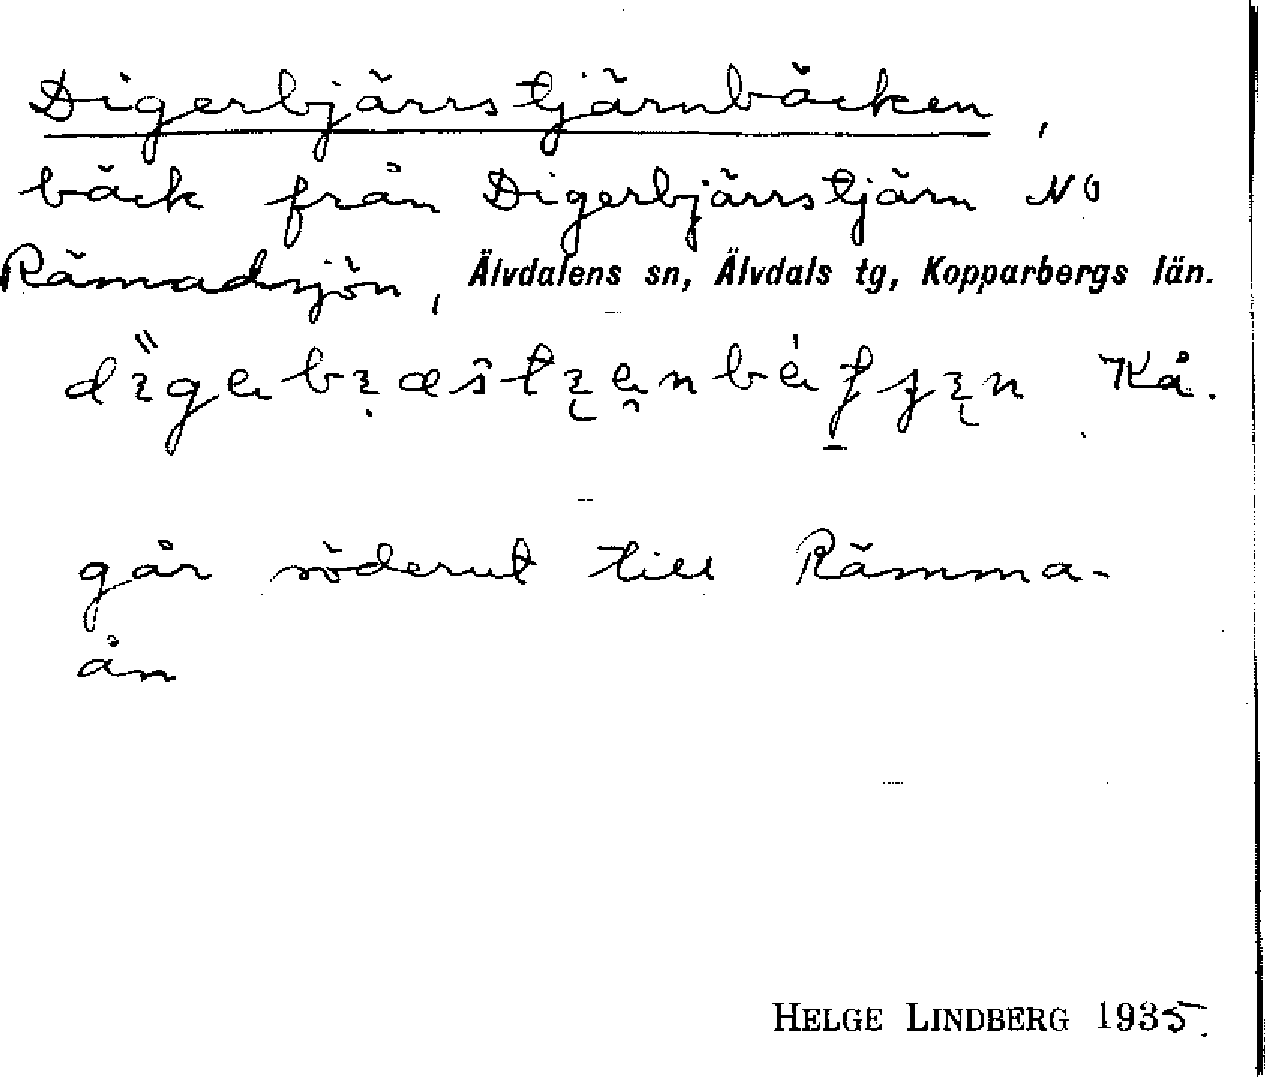 Digerbjärrstjärnbäcken,
bäck från Digerbjärrstjärn NO
Rämadsjön, Älvdalens sn, Älvdals tg, Kopparbergs län.
Kå.
går söderut till Rämma-
ån
HELGE LINDBERG 1935.